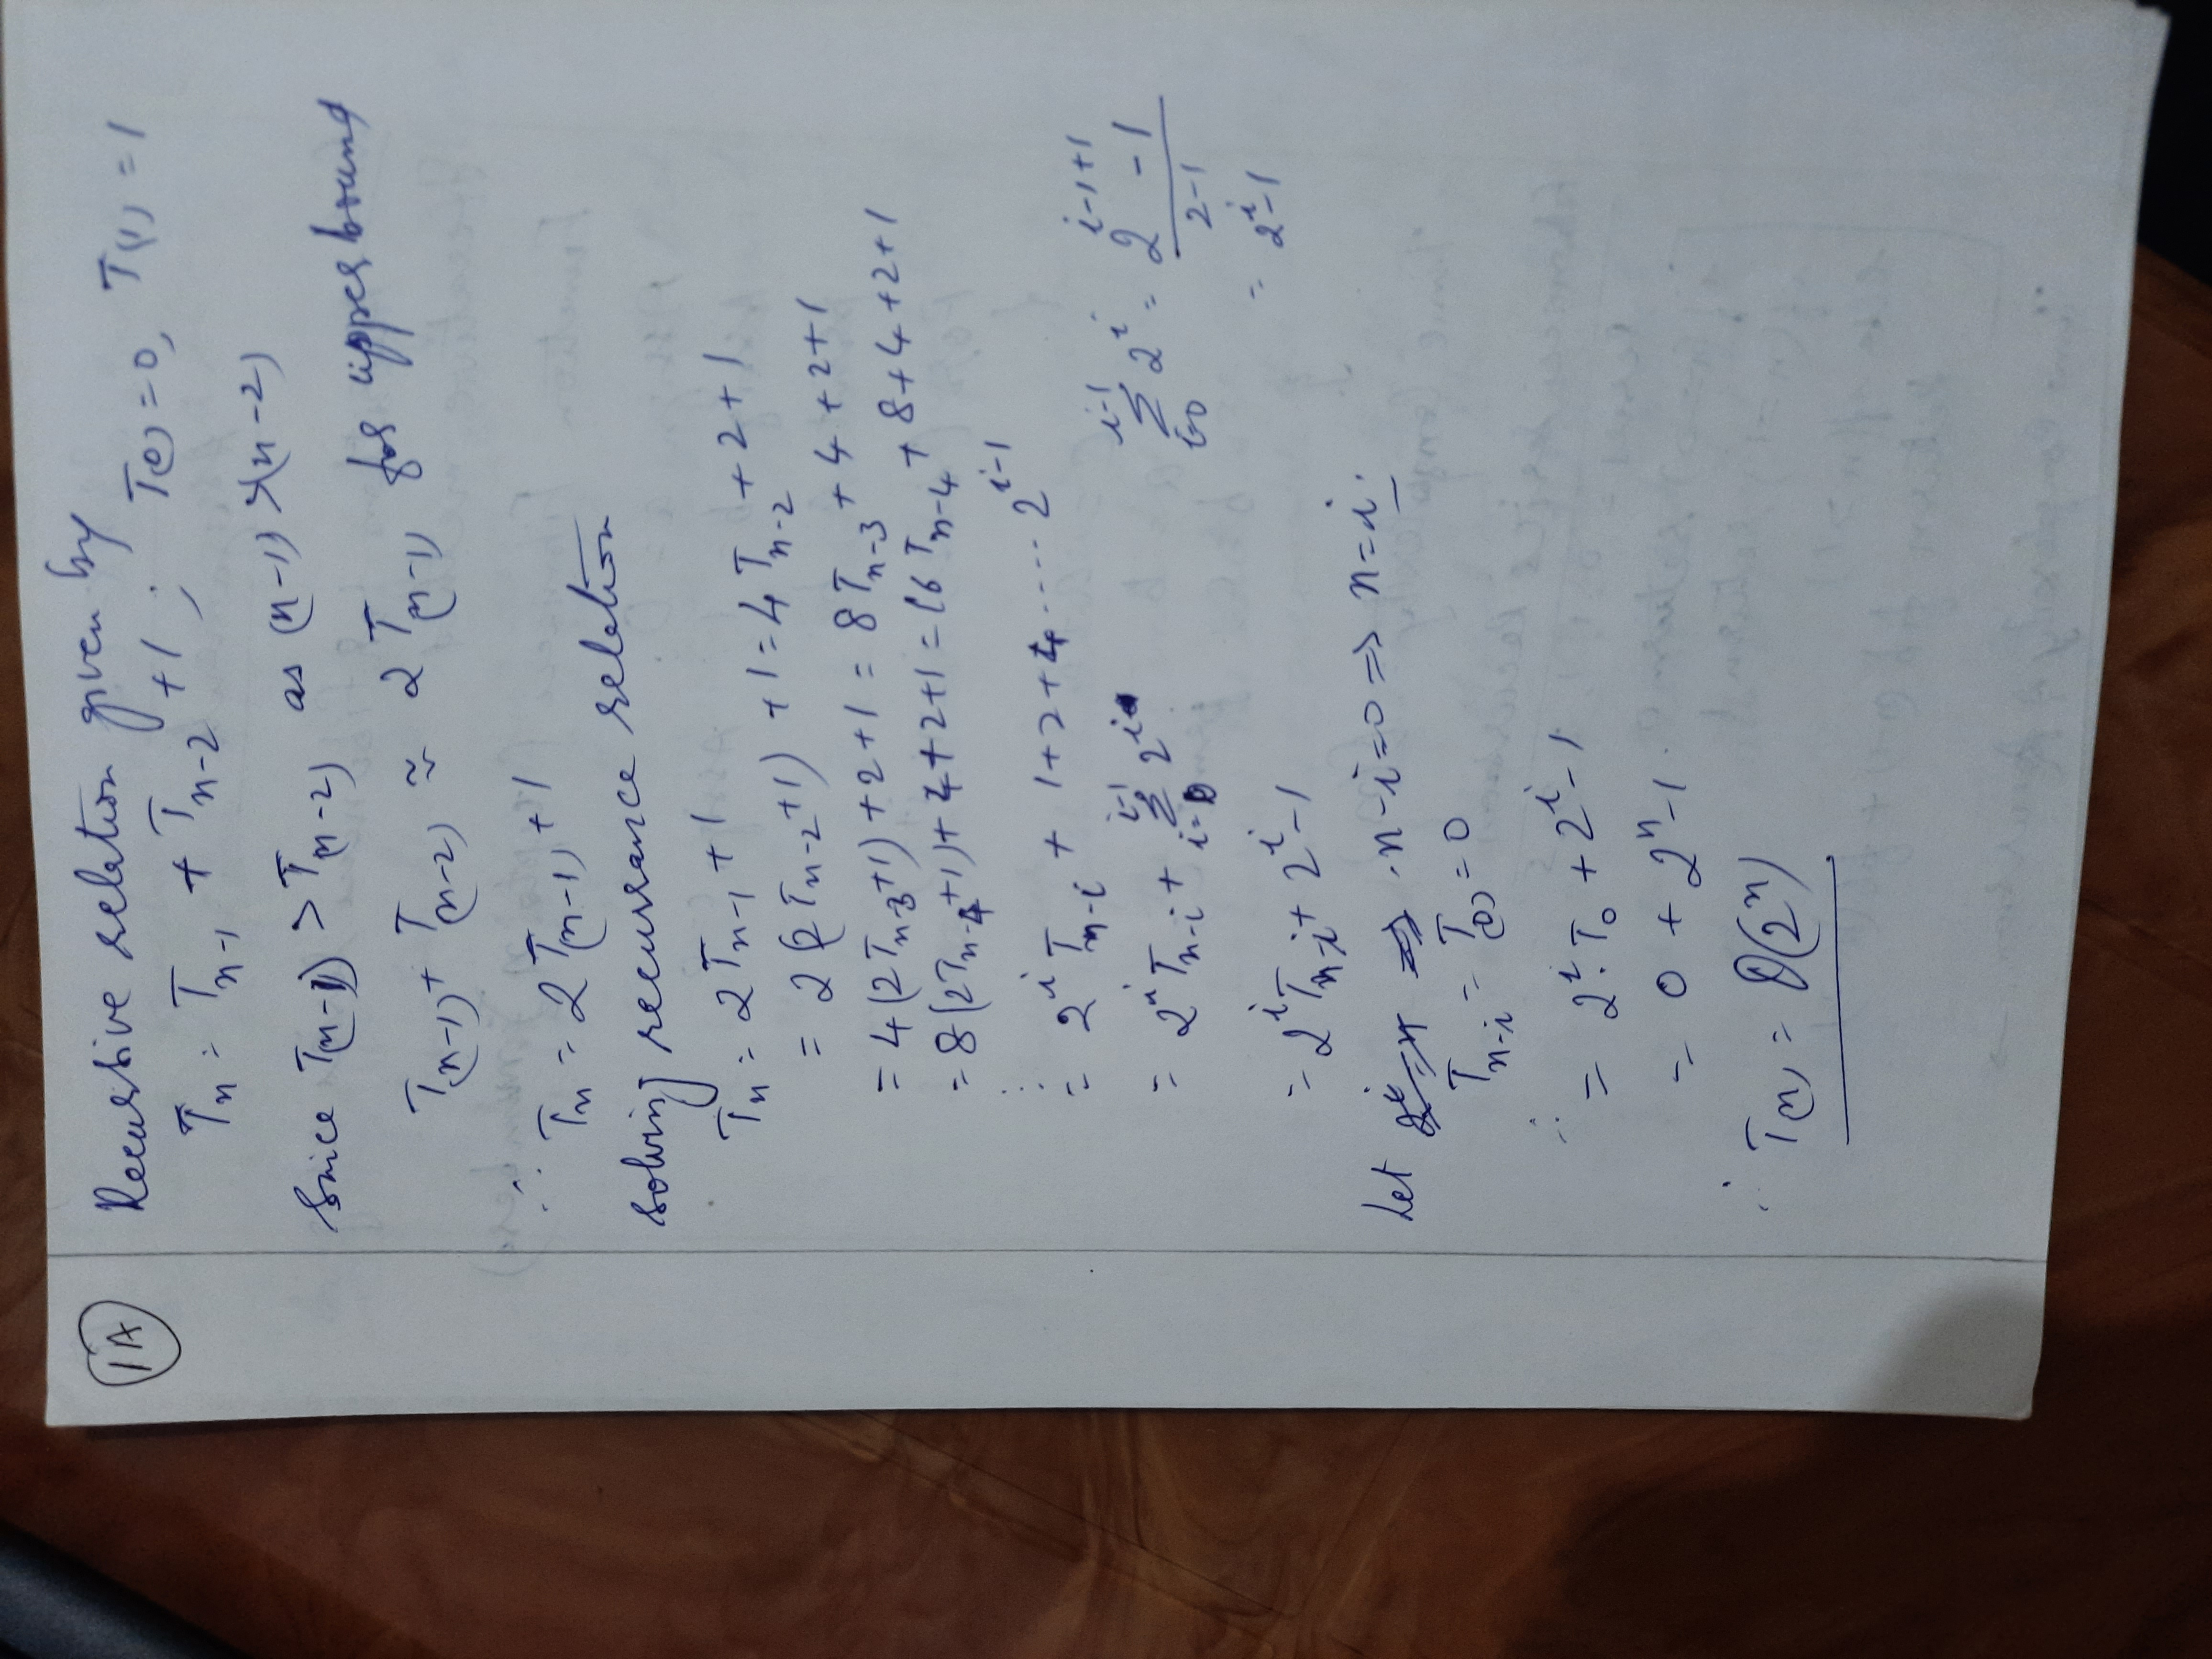 1A
Recursive relation given by
Tn = Tn-1 + Tn-2 +1 ; T(0) = 0, T(1) = 1
Since T(n-1) > T(n-2) as (n-1) > (n-2)
T(n-1) + T(n-2) ≈ 2 T(n-1) for upper bound
∴ Tn = 2 T(n-1) + 1
solving recurrance relation
Tn = 2Tn-1 + 1
= 2(2Tn-2 + 1) + 1 = 4 Tn-2 + 2 + 1
= 4(2Tn-3 + 1) + 2 + 1 = 8Tn-3 + 4 + 2 + 1
= 8(2Tn-4 + 1) + 4 + 2 + 1 = 16 Tn-4 + 8 + 4 + 2 + 1
⋮
= 2^i Tn-i + 1 + 2 + 4 ..... 2^(i-1)
= 2^i Tn-i + Σ_(i=0)^(i-1) 2^i
Σ_(i=0)^(i-1) 2^i = (2^(i-1+1) - 1) / (2-1)
= 2^i - 1
= 2^i Tn-i + 2^i - 1
Let n-i = 0 ⇒ n = i.
Tn-i = T(0) = 0
∴
= 2^i . T0 + 2^i - 1
= 0 + 2^n - 1.
∴ T(n) = O(2^n)